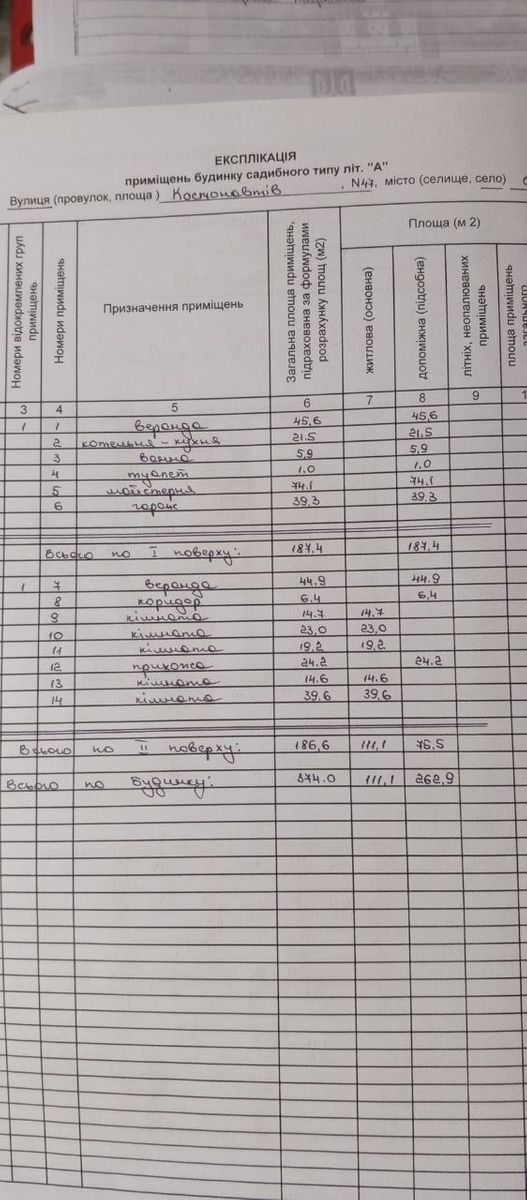 ЕКСПЛІКАЦІЯ
приміщень будинку садибного типу літ. "А"
Вулиця (провулок, площа ) Космонавтів , N47, місто (селище, село)
Номери відокремлених груп приміщень
Номери приміщень
Призначення приміщень
Загальна площа приміщень, підрахована за формулами розрахунку площ (м2)
Площа (м 2)
житлова (основна)
допоміжна (підсобна)
літніх, неопалюваних приміщень
площа приміщень загального
3 4 5 6 7 8 9 1
1 1 веранда 45,6 45,6
2 котельня-кухня 21.5 21,5
3 ванна 5,9 5,9
4 туалет 1.0 1.0
5 майстерня 74.1 74.1
6 гараж 39,3 39,3
Всього по І поверху: 187,4 187,4
1 7 веранда 44.9 44.9
8 коридор 6,4 6,4
9 кімната 14.7 14.7
10 кімната 23,0 23,0
11 кімната 19,2 19,2
12 прихожа 24.2 24.2
13 кімната 14.6 14.6
14 кімната 39,6 39,6
Всього по ІІ поверху: 186,6 111,1 75,5
Всього по будинку: 374.0 111,1 262,9